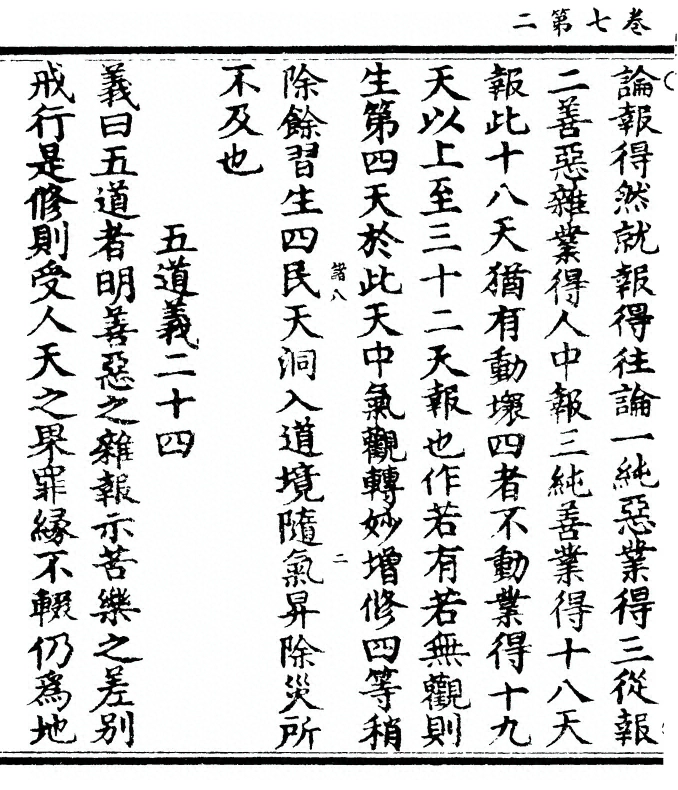 卷七第二
論報得然就報得往論一純惡業得三從報
二善惡雜業得人中報三純善業得十八天
報此十八天猶有動壞四者不動業得十九
天以上至三十二天報也作若有若無觀則
生第四天於此天中氣觀轉妙增修四等稍
諸八
二
除餘習生四民天洞入道境隨氣昇除災所
不及也
五道義二十四
義曰五道者明善惡之雜報示苦樂之差別
戒行是修則受人天之果罪緣不輟仍爲地